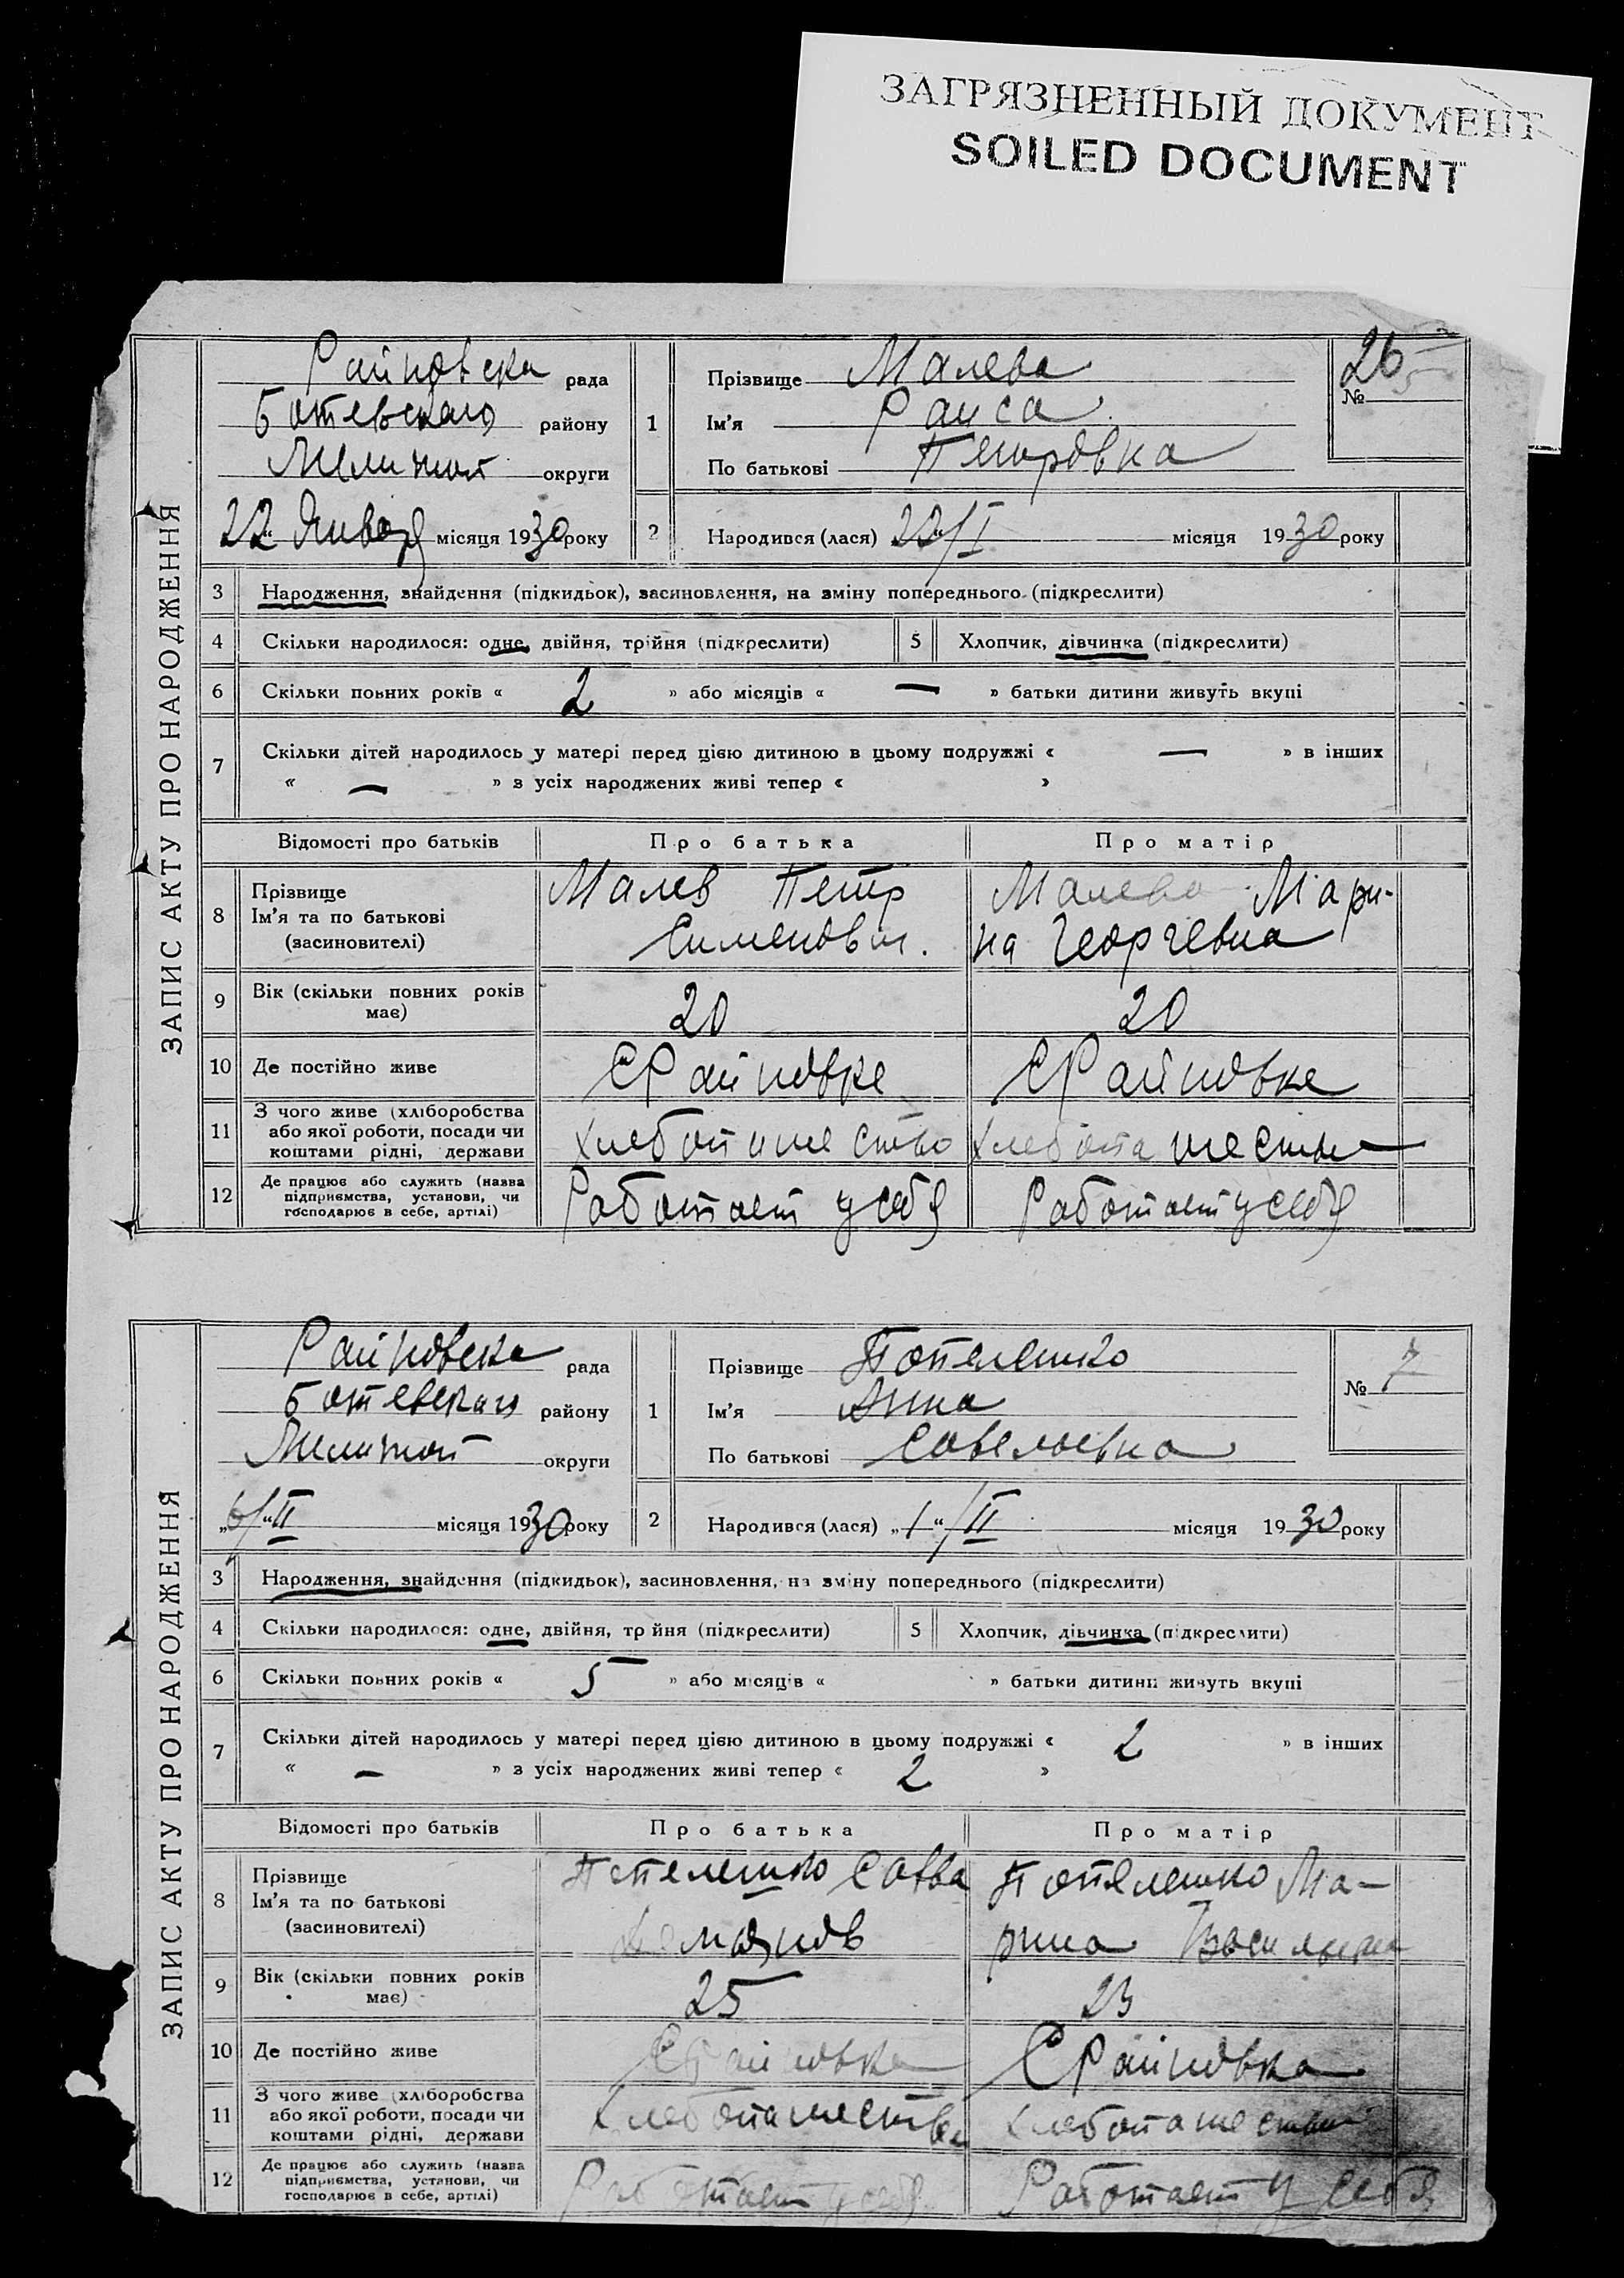 ЗАГРЯЗНЕННЫЙ ДОКУМЕНТ
SOILED DOCUMENT
ЗАПИС АКТУ ПРО НАРОДЖЕННЯ
Райновска рада
Ботевскаго району
Мелитоп округи
22 Января місяця 1930 року
1
Прізвище Малева
Ім'я Раиса
По батькові Петровна
26
№
2
Народився (лася) 22/I місяця 1930 року
3 Народження, знайдення (підкидьок), засиновлення, на зміну попереднього (підкреслити)
4 Скільки народилося: одне, двійня, трійня (підкреслити) 5 Хлопчик, дівчинка (підкреслити)
6 Скільки повних років « 2 » або місяців « — » батьки дитини живуть вкупі
7 Скільки дітей народилось у матері перед цією дитиною в цьому подружжі « — » в інших
« — » з усіх народжених живі тепер « »
Відомості про батьків Про батька Про матір
8 Прізвище
Ім'я та по батькові
(засиновителі)
Малев Петр
Сименович.
Малева Мари-
на Георгевна
9 Вік (скільки повних років
має)
20 20
10 Де постійно живе С Райновке С Райновке
11 З чого живе (хліборобства
або якої роботи, посади чи
коштами рідні, держави
Хлебопашество Хлебопашество
12 Де працює або служить (назва
підприємства, установи, чи
господарює в себе, артілі)
Работает у себя Работает у себя
ЗАПИС АКТУ ПРО НАРОДЖЕННЯ
Райновска рада
Ботевскаго району
Мелитоп округи
„6/“ II місяця 1930 року
1
Прізвище Попелешко
Ім'я Анна
По батькові Савельевна
№ 7
2
Народився (лася) „1“/II місяця 1930 року
3 Народження, знайдення (підкидьок), засиновлення, на зміну попереднього (підкреслити)
4 Скільки народилося: одне, двійня, трійня (підкреслити) 5 Хлопчик, дівчинка (підкреслити)
6 Скільки повних років « 5 » або місяців « » батьки дитини живуть вкупі
7 Скільки дітей народилось у матері перед цією дитиною в цьому подружжі « 2 » в інших
« — » з усіх народжених живі тепер « 2 »
Відомості про батьків Про батька Про матір
8 Прізвище
Ім'я та по батькові
(засиновителі)
Попелешко Савва
Попелешко Ма-
рина Васильевна
9 Вік (скільки повних років
має)
25 23
10 Де постійно живе С Райновка С Райновка
11 З чого живе (хліборобства
або якої роботи, посади чи
коштами рідні, держави
Хлебопашество Хлебопашество
12 Де працює або служить (назва
підприємства, установи, чи
господарює в себе, артілі)
Работает у себя Работает у себя